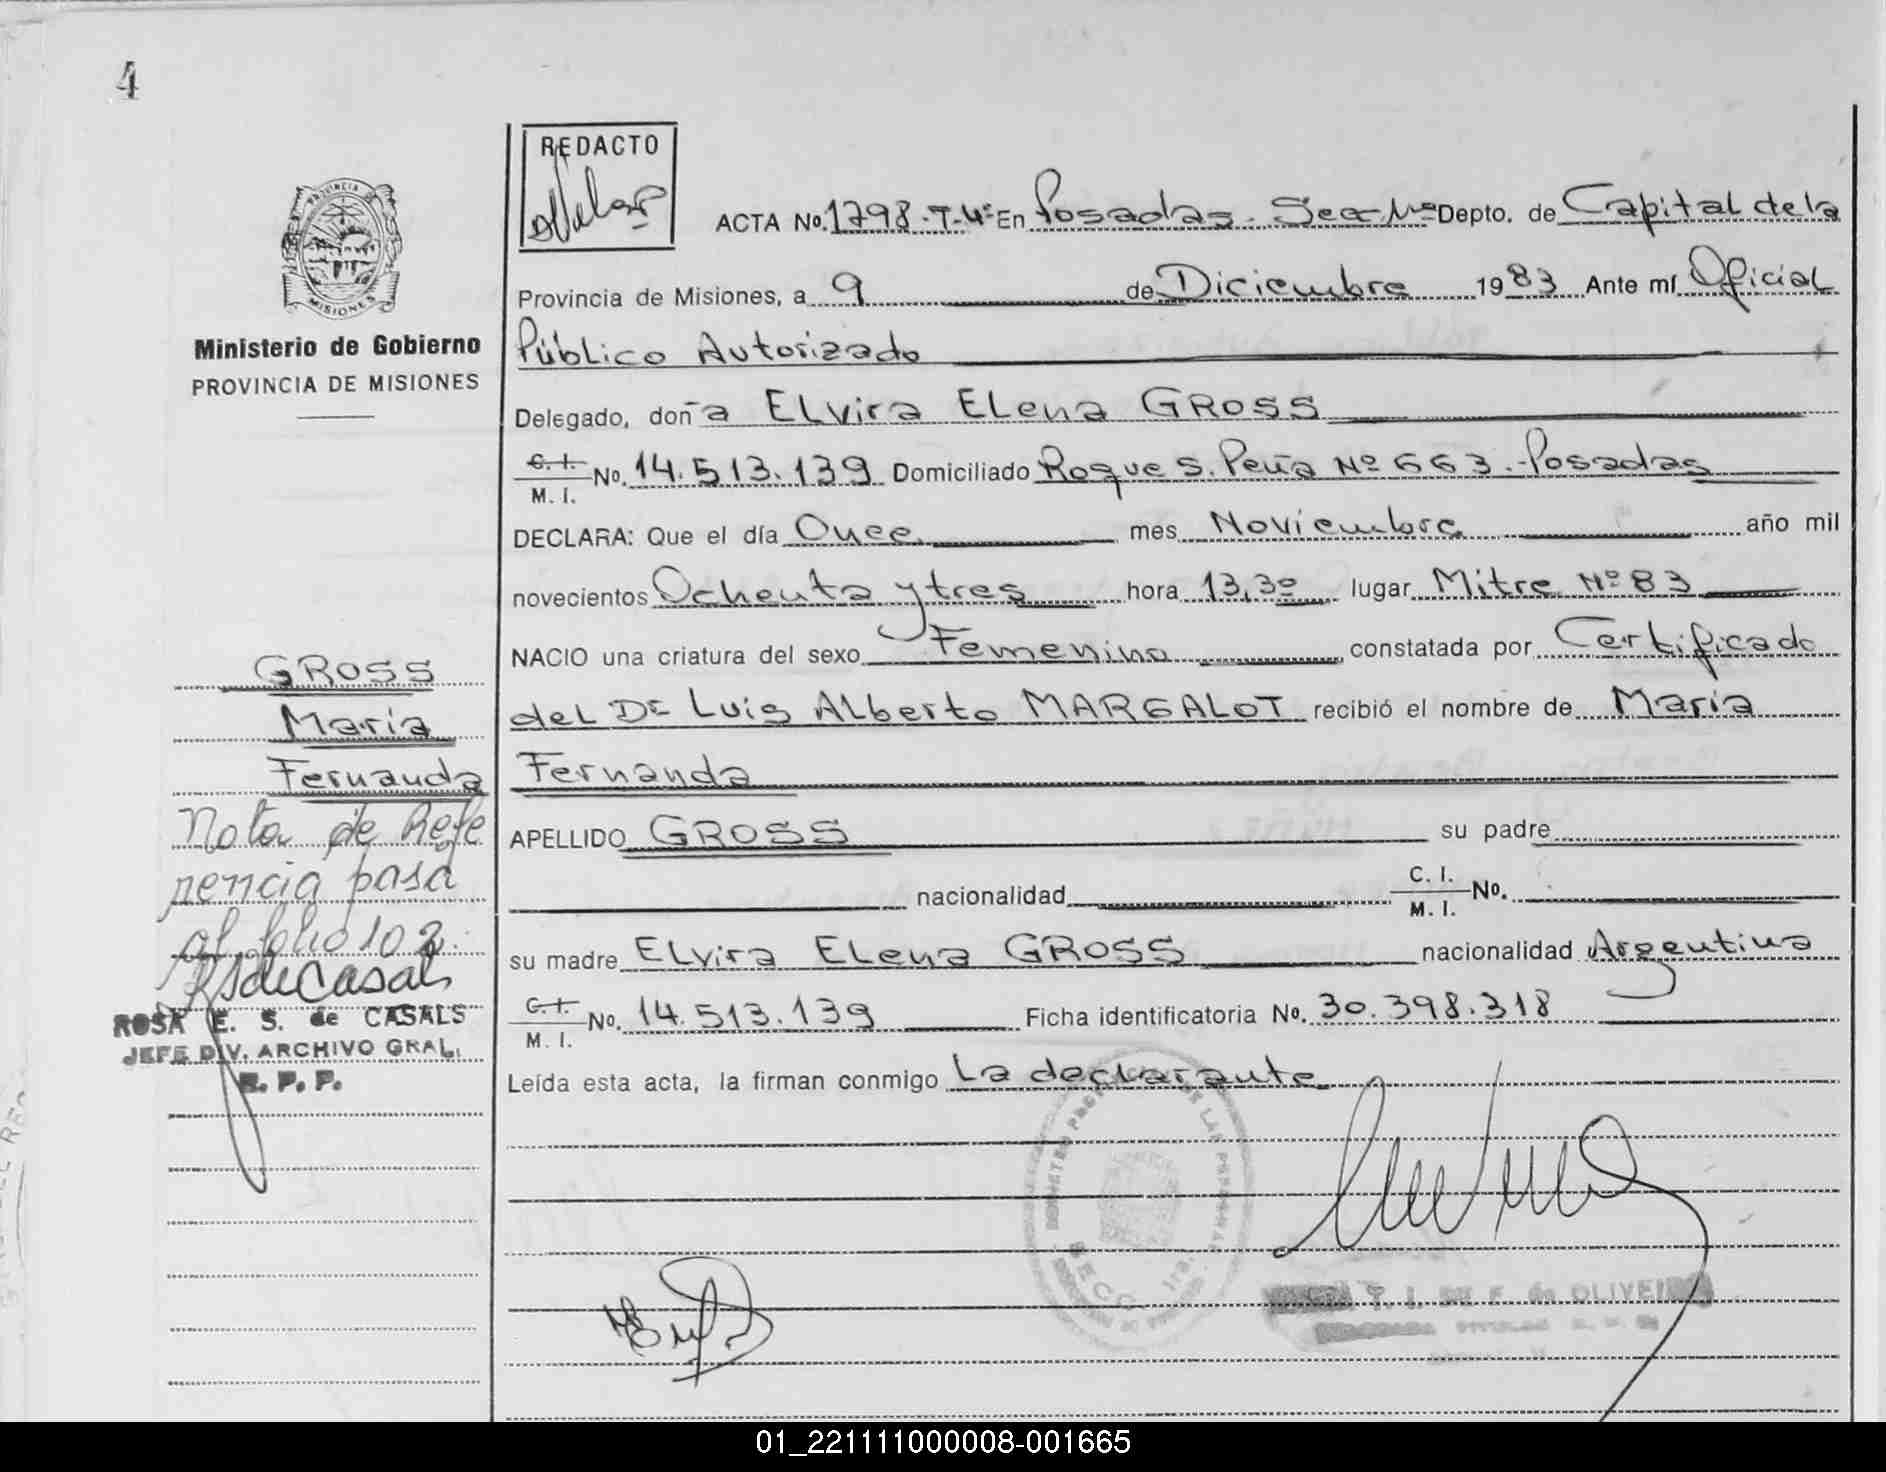 4
REDACTO
PROVINCIA DE
MISIONES
Ministerio de Gobierno
PROVINCIA DE MISIONES
ACTA No. 1798-T-4º En Posadas. Secc 1ª Depto. de Capital de la
Provincia de Misiones, a 9 de Diciembre 1983 Ante mí Oficial
Público Autorizado
Delegado, doña Elvira Elena GROSS
C. I.
M. I. No. 14.513.139 Domiciliado Roque S. Peña Nº 663.-Posadas
DECLARA: Que el día Once mes Noviembre año mil
novecientos Ochenta y tres hora 13,30 lugar Mitre Nº 83
NACIO una criatura del sexo Femenino constatada por Certificado
del Dr Luis Alberto MARGALOT recibió el nombre de María
Fernanda
APELLIDO GROSS su padre
nacionalidad C. I.
M. I. No.
su madre Elvira Elena GROSS nacionalidad Argentina
C. I.
M. I. No. 14.513.139 Ficha identificatoria No. 30.398.318
Leída esta acta, la firman conmigo La declarante
GROSS
María
Fernanda
Nota de Refe
rencia pasa
al folio 102.
RSdeCasals
ROSA E. S. de CASALS
JEFE DIV. ARCHIVO GRAL.
R. P. P.
DE LAS PERSONAS
SECC. 1ra.
T. I. DE F. de OLIVEIRA
TITULAR
01_221111000008-001665